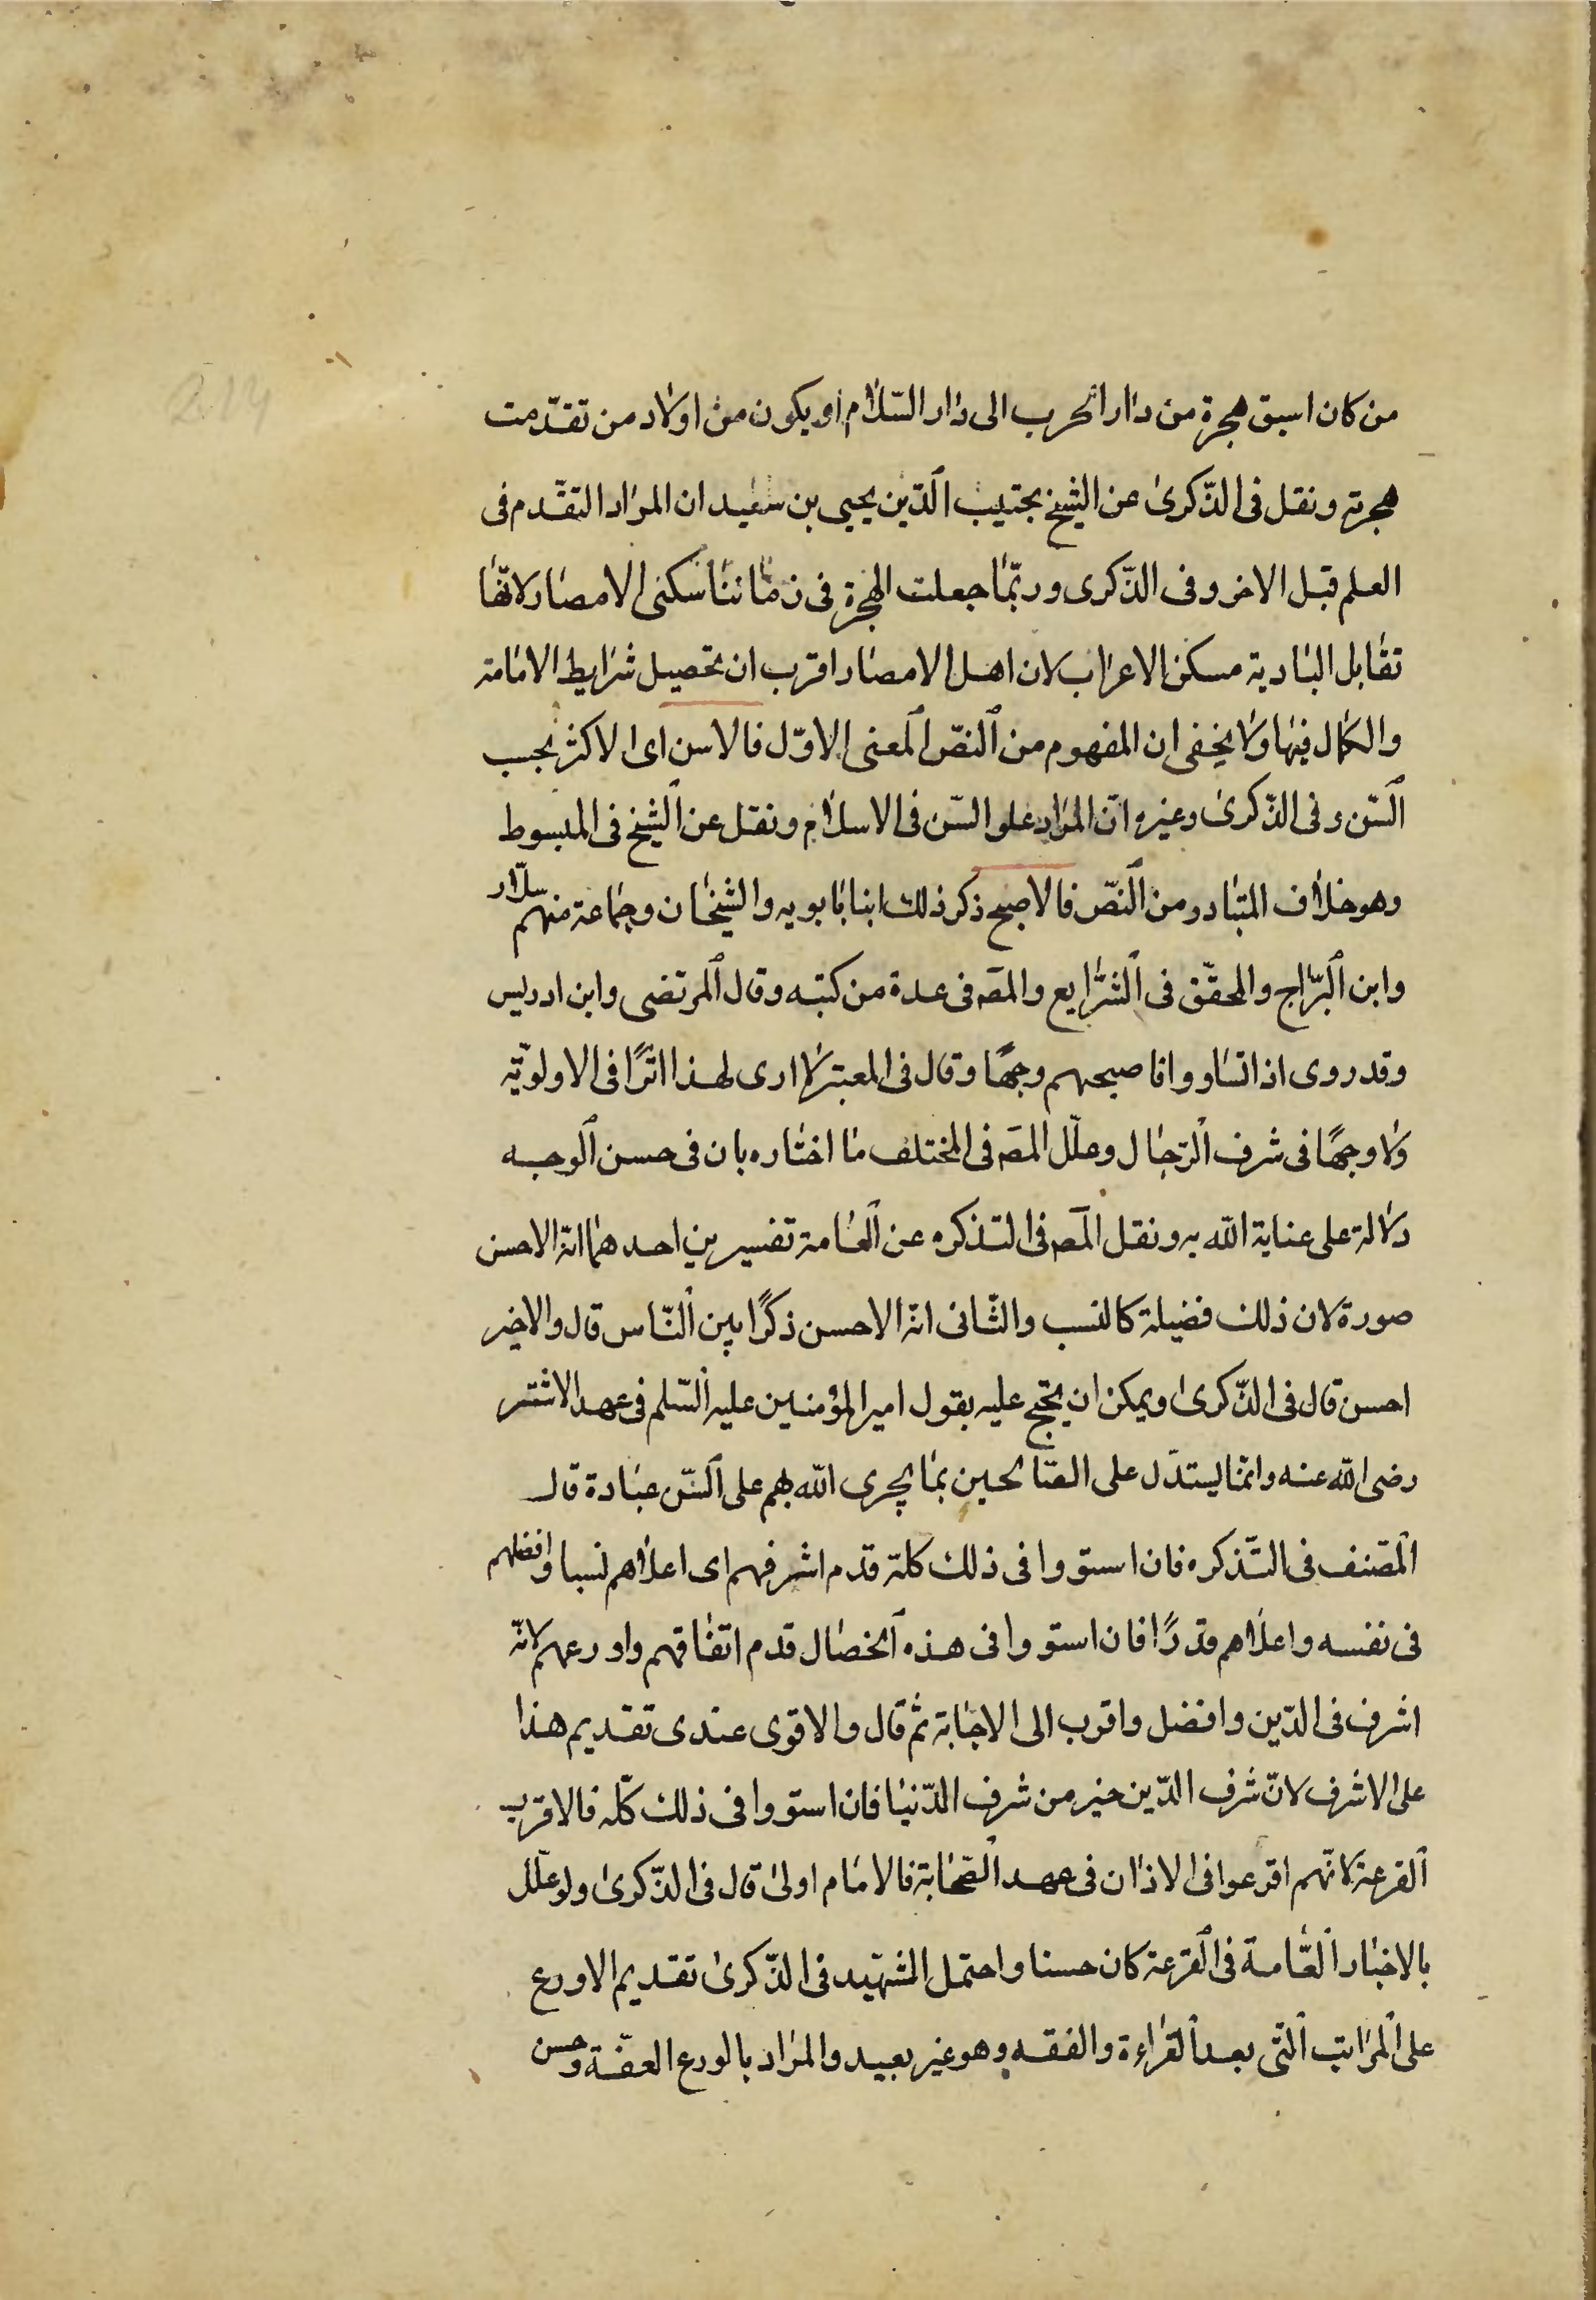 من كان اسبق هجرة من دار الحرب الى دار السّلام او يكون من اولاد من تقدّمت
هجرته ونقل فى الذّكرى عن الشيخ بجتيب الدّين يحيى بن سعيد ان المراد التقدم فى
العلم قبل الاخر وفى الذّكرى وربّما جعلت الهجرة فى زماننا سكنى الامصار لانّها
تقابل البادية مسكن الاعراب لان اهل الامصار اقرب ان تحصيل شرايط الامامة
والكمال فيها ولا يخفى ان المفهوم من النصّ المعنى الاوّل فالاسن اى الاكثر بحسب
السّن وفى الذّكرى وغيره انّ المراد علو السّن فى الاسلام ونقل عن الشيخ فى المبسوط
وهو خلاف المتبادر من النصّ فالاصبح ذكر ذلك ابنا بابويه والشيخان وجماعة منهم سلّار
وابن البرّاج والمحقّق فى الشّرايع والمصَ فى عدة من كتبه وقال المرتضى وابن ادريس
وقد روى اذا تساووا فاصبحهم وجهًا وقال فى المعتبر لا ارى لهذا اثرًا فى الاولويّة
ولا وجهًا فى شرف الرّجال وعلّل المصَ فى المختلف ما اختاره بان فى حسن الوجه
دلالة على عناية الله به ونقل المصَ فى التذكره عن العامة تفسيرين احدهما انّه الاحسن
صورة لان ذلك فضيلة كالنسب والثّانى انّه الاحسن ذكرًا بين النّاس قال والاخير
احسن قال فى الذّكرى ويمكن ان يحتج عليه بقول امير المؤمنين عليه السّلم فى عهد الاشتر
رضى الله عنه وانّما يستدّل على الصّالحين بما يجرى الله لهم على السّن عبادة قال
المصّنف فى التّذكره فان استووا فى ذلك كلة قدم اشرفهم اى اعلاهم نسبا وافضلهم
فى نفسه واعلاهم قدرًا فان استووا فى هذه الخصال قدم اتفاقهم واورعهم لانّه
اشرف فى الدّين وافضل واقرب الى الاجابة ثم قال والاقوى عندى تقديم هذا
على الاشرف لانّ شرف الدّين خير من شرف الدّنيا فان استووا فى ذلك كلّه فالاقرب
القرعة لانّهم اقرعوا فى الاذان فى عهد الصّحابة فالامام اولى قال فى الذّكرى ولو علّل
بالاخبار العّامة فى القرعة كان حسنا واحتمل الشهيد فى الذّكرى تقديم الاورع
على المراتب الّتى بعد القراءة والفقه وهو غير بعيد والمراد بالورع العفّة وحسن